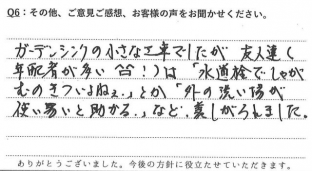 Q6：その他、ご意見ご感想、お客様の声をお聞かせください。
ガーデンシンクの小さな工事でしたが 友人達（
年配者が多い 笑!）は「水道栓でしゃが
むのきついよねぇ。」とか「外の洗い場が
使い易いと助かる。」など、羨しがられました。
ありがとうございました。今後の方針に役立たせていただきます。